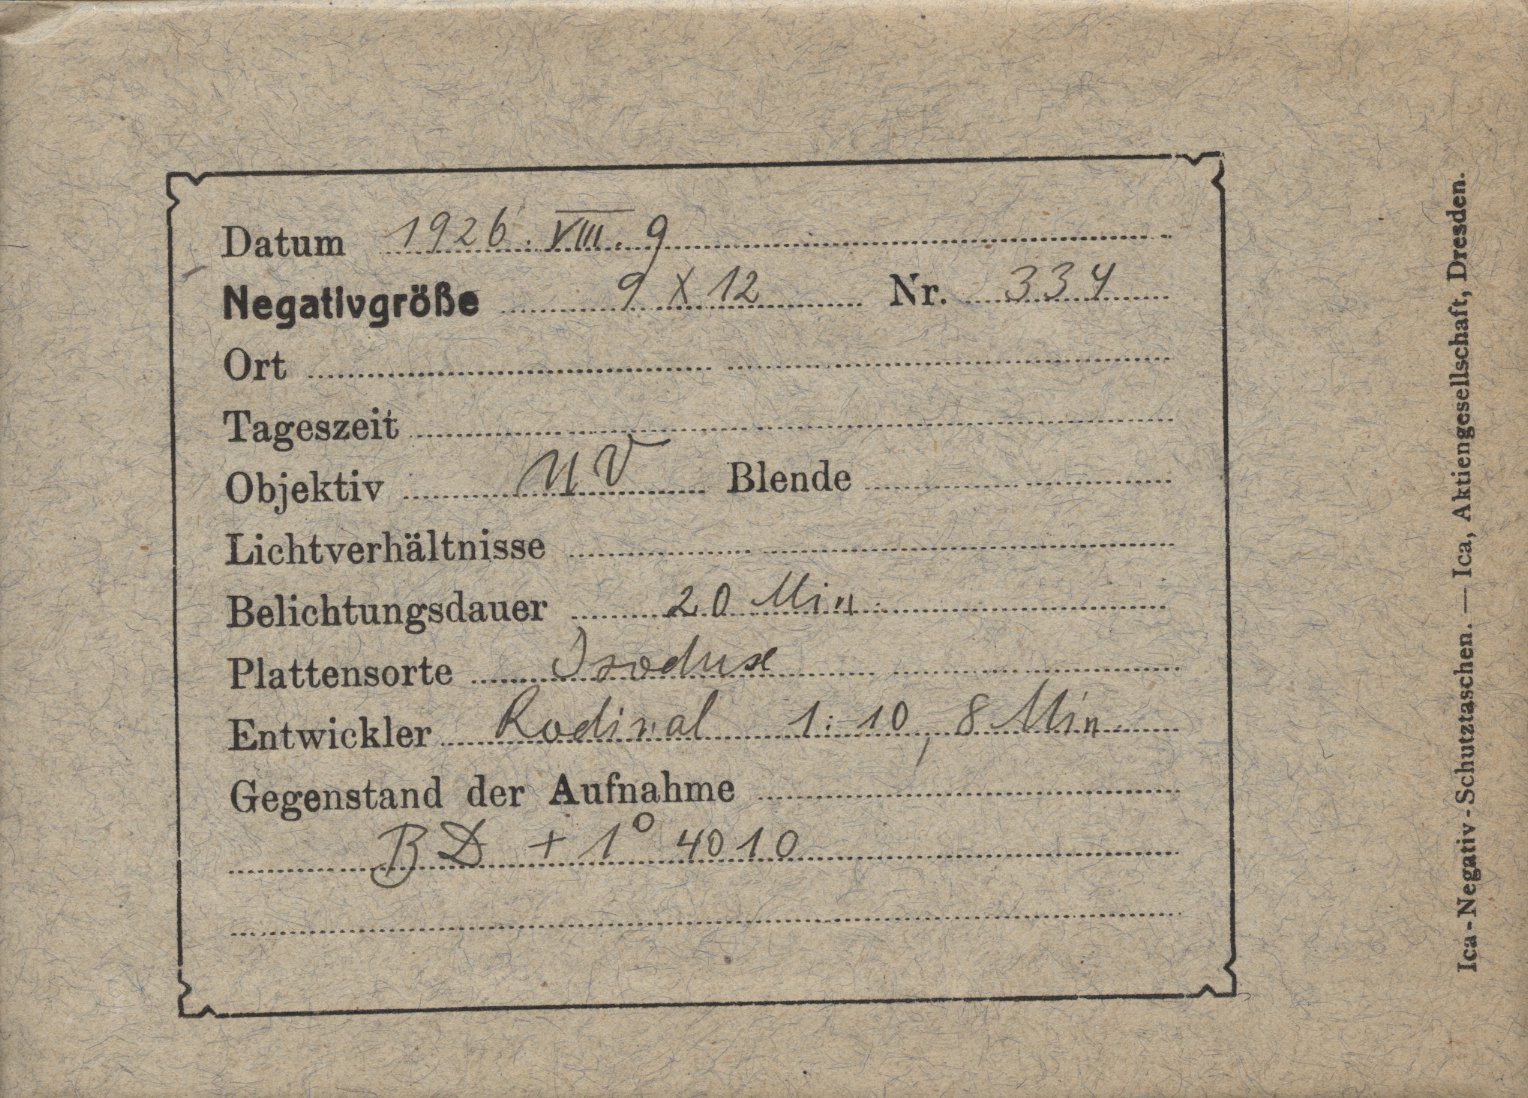 Datum 1926. VIII. 9
Negativgröße 9 X 12 Nr. 334
Ort
Tageszeit
Objektiv UV Blende
Lichtverhältnisse
Belichtungsdauer 20 Min.
Plattensorte Isodux
Entwickler Rodinal 1:10, 8 Min.
Gegenstand der Aufnahme
BD + 1° 4010
Ica-Negativ-Schutztaschen. — Ica, Aktiengesellschaft, Dresden.